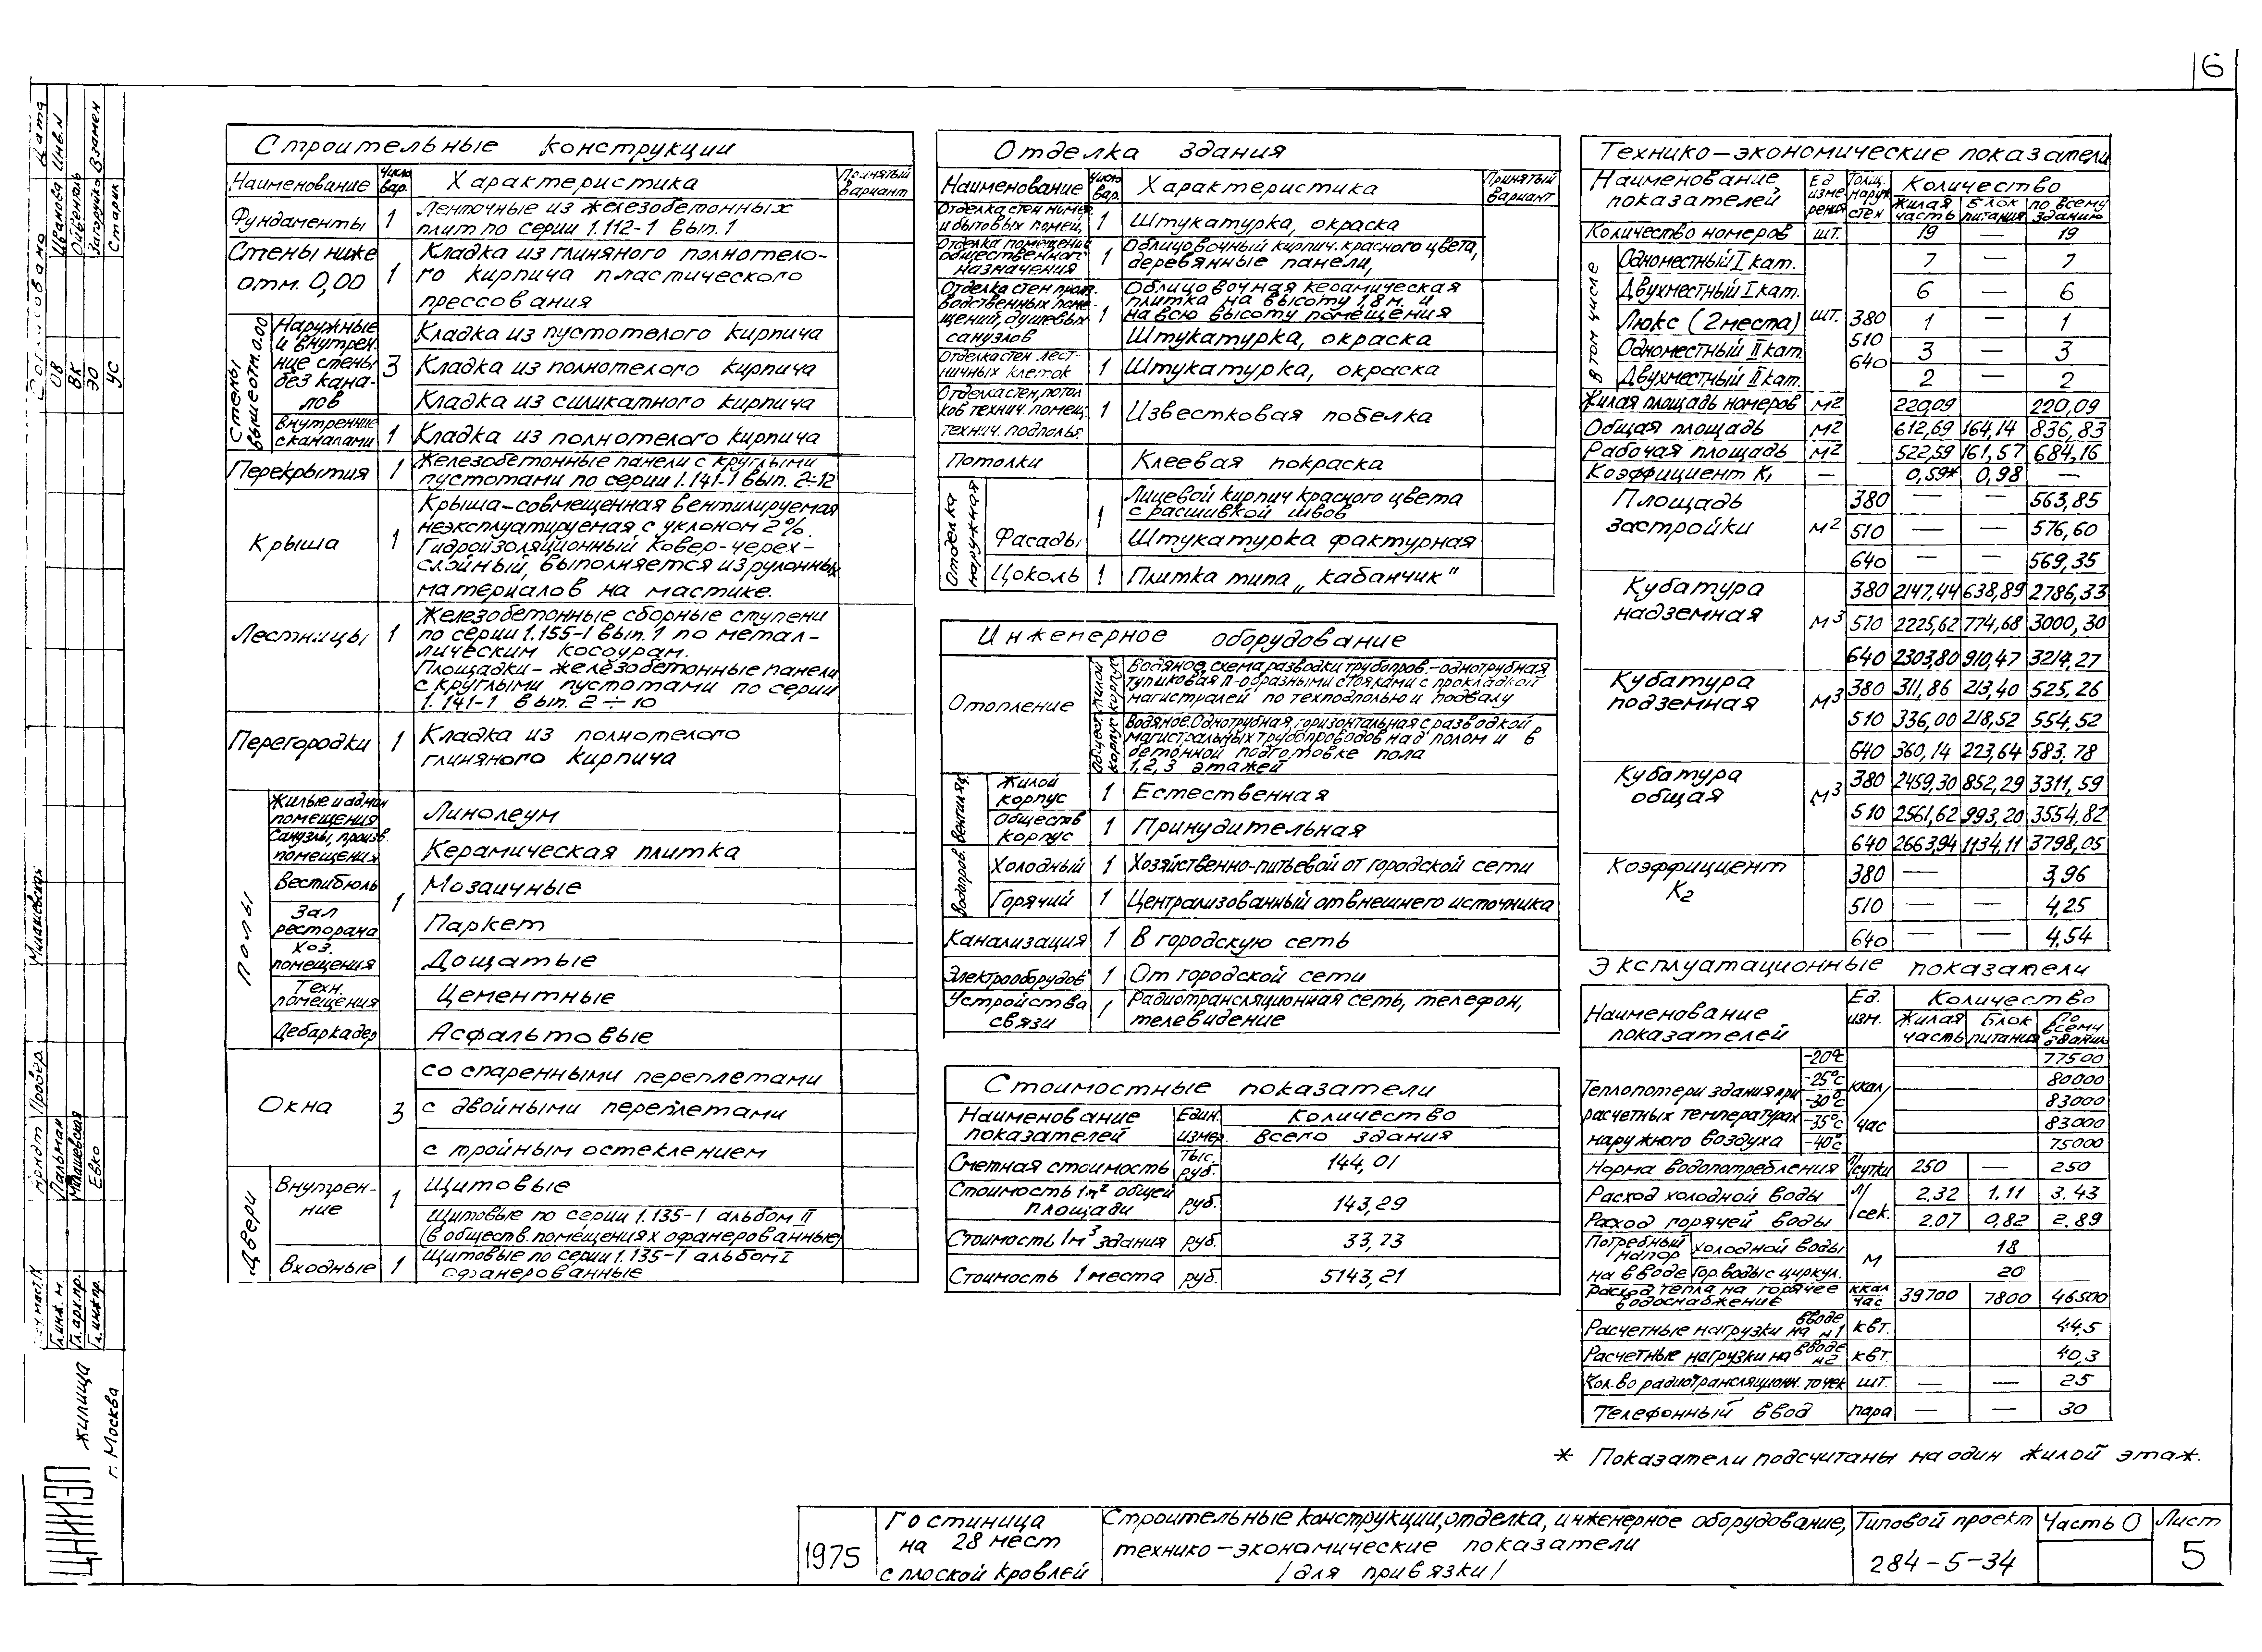 6
Строительные конструкции
Наименование Число вар. Характеристика Принятый вариант
Фундаменты 1 Ленточные из железобетонных
плит по серии 1.112-1 вып. 1
Стены ниже отм. 0,00 1 Кладка из глиняного полнотело-
го кирпича пластического
прессования
Стены выше отм. 0.00
Наружные и внутрен. ние стены без кана- лов 3 Кладка из пустотелого кирпича
Кладка из полнотелого кирпича
Кладка из силикатного кирпича
Внутренние с каналами 1 Кладка из полнотелого кирпича
Перекрытия 1 Железобетонные панели с круглыми
пустотами по серии 1.141-1 вып. 2÷12
Крыша 1 Крыша-совмещенная вентилируемая
неэксплуатируемая с уклоном 2%.
Гидроизоляционный ковер-черех-
слойный, выполняется из рулонных
материалов на мастике.
Лестницы 1 Железобетонные сборные ступени
по серии 1.155-1 вып. 1 по метал-
лическим косоурам.
Площадки-железобетонные панели
с круглыми пустотами по серии
1.141-1 вып. 2÷10
Перегородки 1 Кладка из полнотелого
глиняного кирпича
Полы 1
Жилые и админ помещения Линолеум
Санузлы, произв. помещения Керамическая плитка
Вестибюль Мозаичные
Зал ресторана Паркет
Хоз. помещения Дощатые
Техн. помещения Цементные
Дебаркадер Асфальтовые
Окна 3 со спаренными переплетами
с двойными переплетами
с тройным остеклением
Двери
Внутрен- ние 1 Щитовые
Щитовые по серии 1.135-1 альбом II
(в обществ. помещениях офанерованные)
Входные 1 Щитовые по серии 1.135-1 альбом I
офанерованные
Отделка здания
Наименование Число вар. Характеристика Принятый вариант
Отделка стен номер. и бытовых помещ. 1 Штукатурка, окраска
Отделка помещений общественного назначения 1 Облицовочный кирпич. красного цвета,
деревянные панели,
Отделка стен произ- водственных поме- щений, душевых санузлов 1 Облицовочная керамическая
плитка на высоту 1,8 м. и
на всю высоту помещения
Штукатурка, окраска
Отделка стен лест- ничных клеток 1 Штукатурка, окраска
Отделка стен, потол ков технич. помещ. технич. подполья. 1 Известковая побелка
Потолки Клеевая покраска
Отделка наружная
Фасады 1 Лицевой кирпич красного цвета
с расшивкой швов
Штукатурка фактурная
Цоколь 1 Плитка типа „кабанчик"
Инженерное оборудование
Отопление
Жилой корпус Водяное, схема разводки трубопров.-однотрубная
тупиковая п-образными стояками с прокладкой
магистралей по техподполью и подвалу
Обществ. корпус Водяное. Однотрубная, горизонтальная с разводкой
магистральных трубопроводов над полом и в
бетонной подготовке пола
1,2,3 этажей
Вентиляц.
Жилой корпус 1 Естественная
Обществ корпус 1 Принудительная
Водопров.
Холодный 1 Хозяйственно-питьевой от городской сети
Горячий 1 Централизованный от внешнего источника
Канализация 1 В городскую сеть
Электрооборудов 1 От городской сети
Устройства связи 1 Радиотрансляционная сеть, телефон,
телевидение
Стоимостные показатели
Наименование показателей Един. измер. Количество
всего здания
Сметная стоимость тыс. руб. 144,01
Стоимость 1м² общей площади руб. 143,29
Стоимость 1м³ здания руб. 33,73
Стоимость 1 места руб. 5143,21
Технико-экономические показатели
Наименование показателей Ед измерения Толщ. наруж стен Количество
Жилая часть Блок питания по всему зданию
Количество номеров шт. 19 — 19
в том числе шт. 380 510 640
Одноместный I кат. 7 — 7
Двухместный I кат. 6 — 6
Люкс (2 места) 1 — 1
Одноместный II кат. 3 — 3
Двухместный II кат. 2 — 2
Жилая площадь номеров м2 220,09 220,09
Общая площадь м2 612,69 164,14 836,83
Рабочая площадь м2 522,59 161,57 684,16
Коэффициент К₁ — 0,59* 0,98 —
Площадь застройки м2 380 — — 563,85
510 — — 576,60
640 — — 569,35
Кубатура надземная м3 380 2147,44 638,89 2786,33
510 2225,62 774,68 3000,30
640 2303,80 910,47 3214,27
Кубатура подземная м3 380 311,86 213,40 525,26
510 336,00 218,52 554,52
640 360,14 223,64 583.78
Кубатура общая м3 380 2459,30 852,29 3311,59
510 2561,62 993,20 3554,82
640 2663,94 1134,11 3798,05
Коэффициент К2 380 — 3,96
510 — — 4,25
640 — — 4,54
Эксплуатационные показатели
Наименование показателей Ед. изм. Количество
Жилая часть Блок питания По всему зданию
Теплопотери здания при расчетных температурах наружного воздуха ккал/час
-20°с 77500
-25°с 80000
-30°с 83000
-35°с 83000
-40°с 75000
Норма водопотребления л/сутки 250 — 250
Расход холодной воды л/сек. 2.32 1.11 3.43
Расход горячей воды 2.07 0,82 2.89
Потребный напор на вводе холодной воды м 18
гор. воды с циркул. 20
Расход тепла на горячее водоснабжение ккал час 39700 7800 46500
Расчетные нагрузки на вводе н1 квт. 44,5
Расчетные нагрузки на вводе н2 квт. 40,3
Кол.во радиотрансляционн. точек шт. — — 25
Телефонный ввод пара — — 30
* Показатели подсчитаны на один жилой этаж.
1975
Гостиница
на 28 мест
с плоской кровлей
Строительные конструкции, отделка, инженерное оборудование,
технико-экономические показатели
/для привязки/
Типовой проект
284-5-34
Часть 0
Лист
5
ЦНИИЭП жилища
г. Москва
Гл. инж. м.
Гл. арх. пр.
Гл. инж. пр.
Пальман
Милашевская
Евко
Провер.
Милашевская
Согласовано
Иванова
Загоруйко
Старик
Дата
Инв. N
Взамен